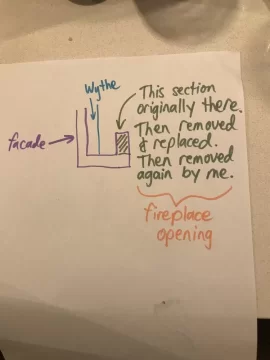 Wythe
This section
originally there.
Then removed
& replaced.
Then removed
again by me.
facade
fireplace
opening